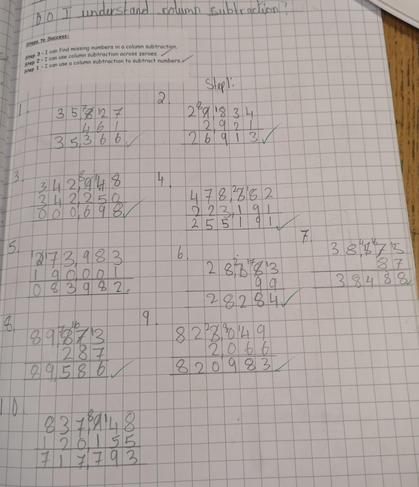 DO I understand column subtraction?
Steps to Success:
Step 3 - I can find missing numbers in a column subtraction.
Step 2 - I can use column subtraction across zeroes.
Step 1 - I can use a column subtraction to subtract numbers.
Step 1:
1.
35,827
461
35,366
2.
29,834
2,921
26,913
3.
342,948
342,250
000,698
4.
478,382
223,191
255,191
5.
273,983
190,001
083,982
6.
28,383
99
28,284
7.
38,575
87
38488
8.
89,873
287
89,586
9.
823,049
2,066
820,983
10.
837,948
120,155
717,793